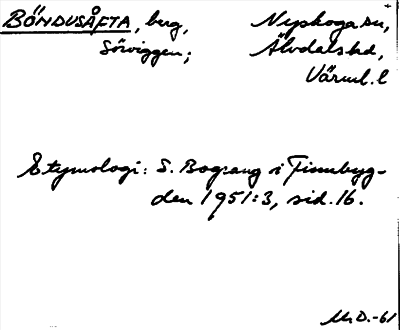 BÖNDUSÅFTA, berg, Nyskoga sn,
Sörviggen; Älvdals hd,
Värml. l
Etymologi: S. Bograng i Finnbyg-
den 1951:3, sid. 16.
M.D.-61